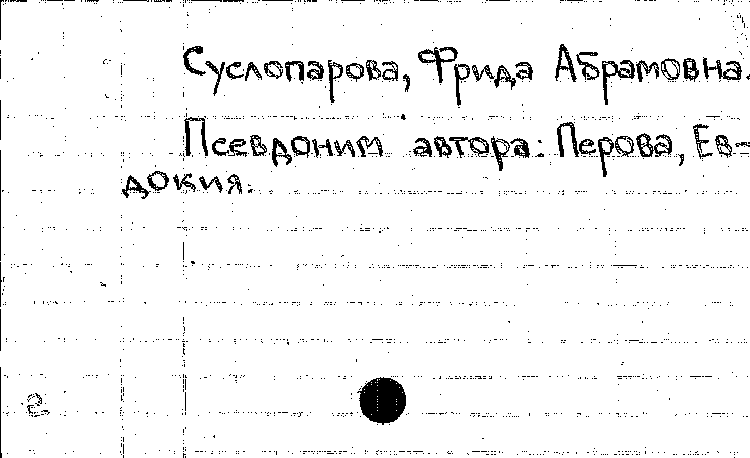 Суслопарова, Фрида Абрамовна.
Псевдоним автора: Перова, Ев-
докия.
2